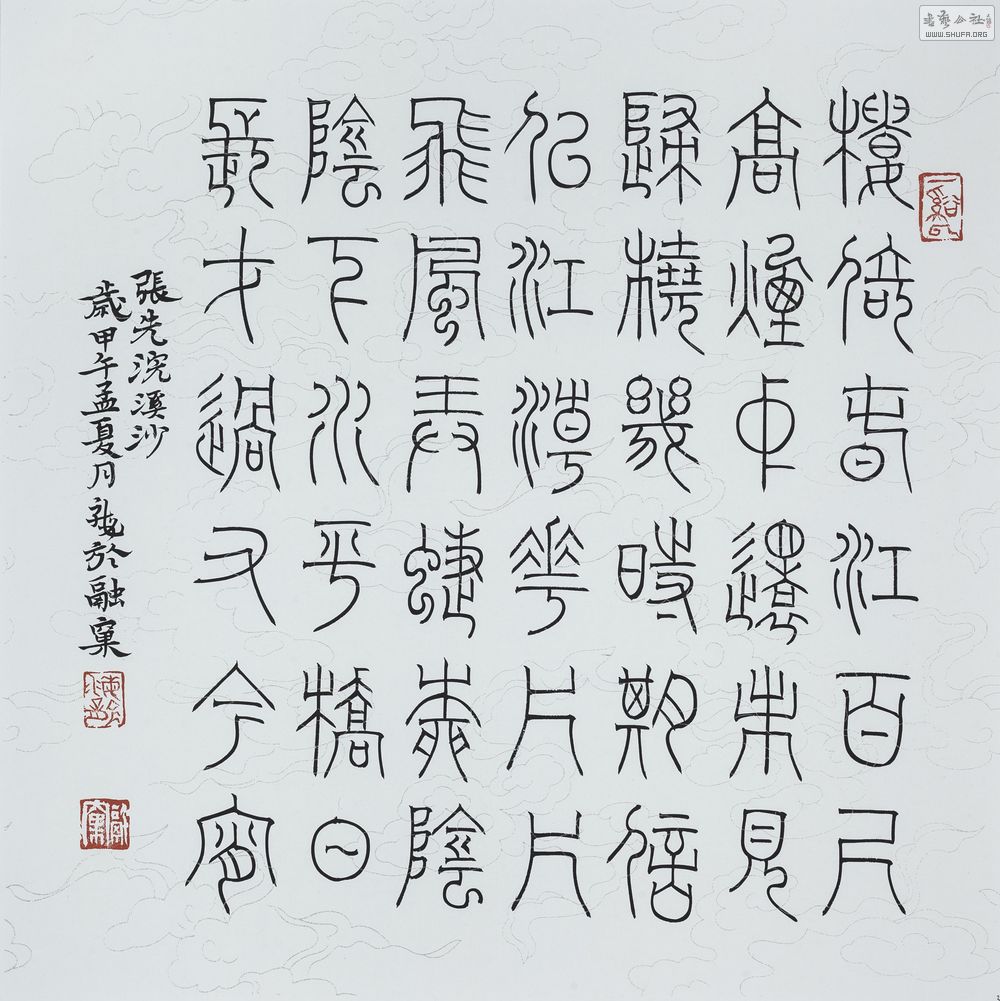 樓倚春江百尺
高煙中還未見
歸橈幾時期信
似江潮花片片
飛風弄蝶柳陰
陰下水平橋日
長才過又今宵
張先浣溪沙
歲甲午孟夏月於融窠
書藝公社
WWW.SHUFA.ORG